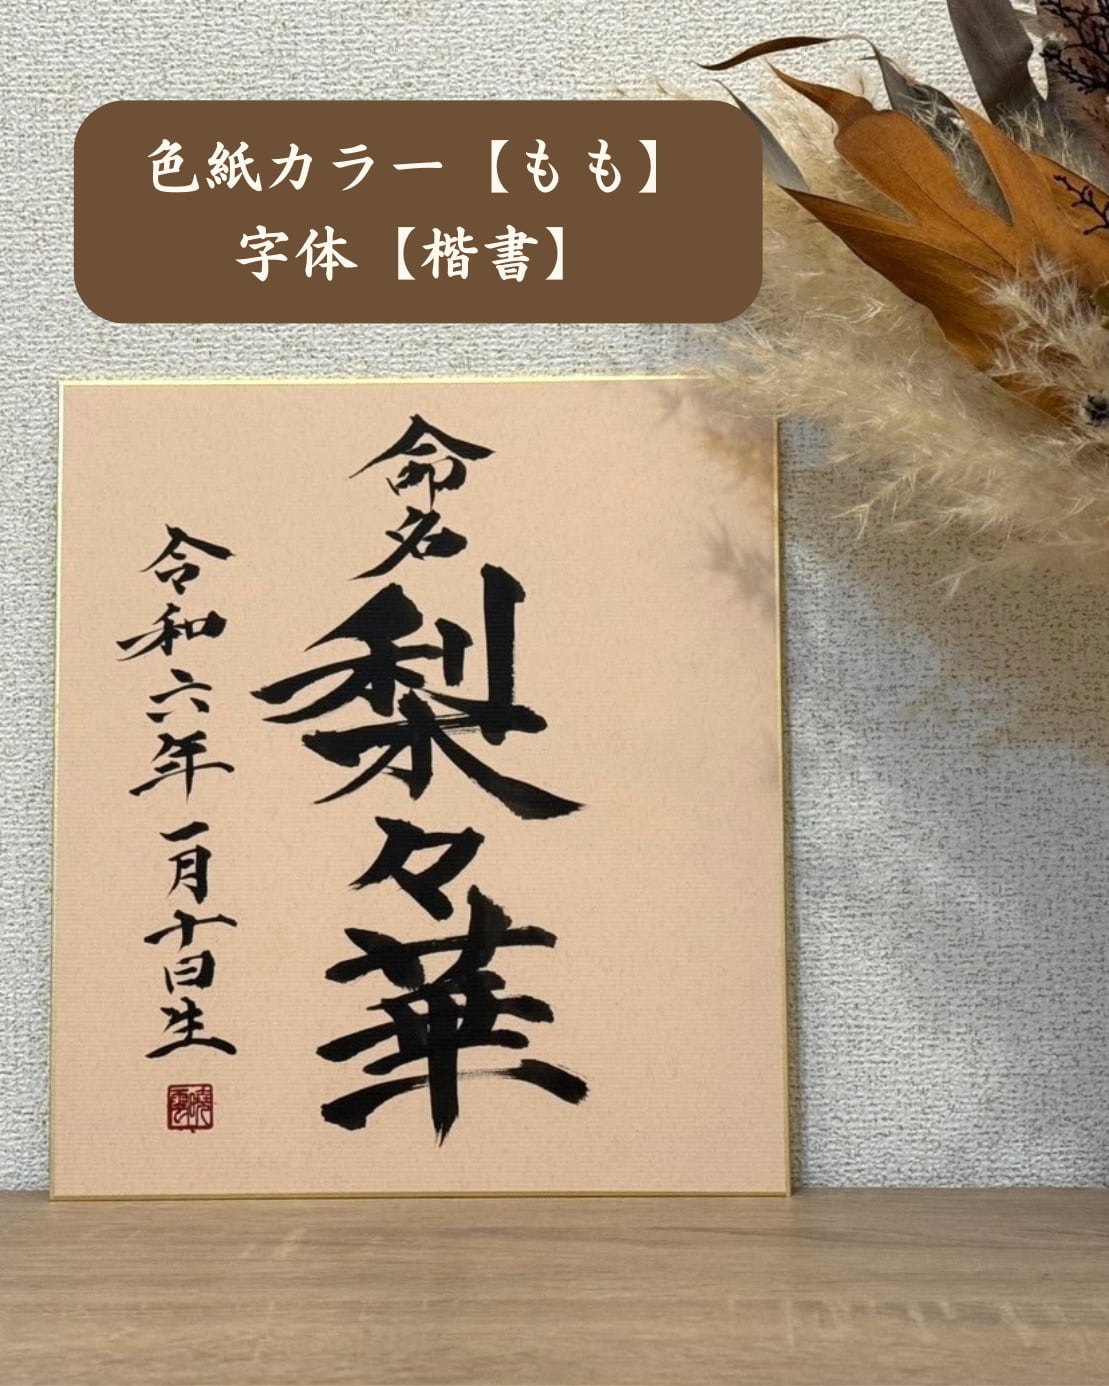 色紙カラー【もも】
字体【楷書】
命名
梨々華
令和六年 一月十日生
曉雲